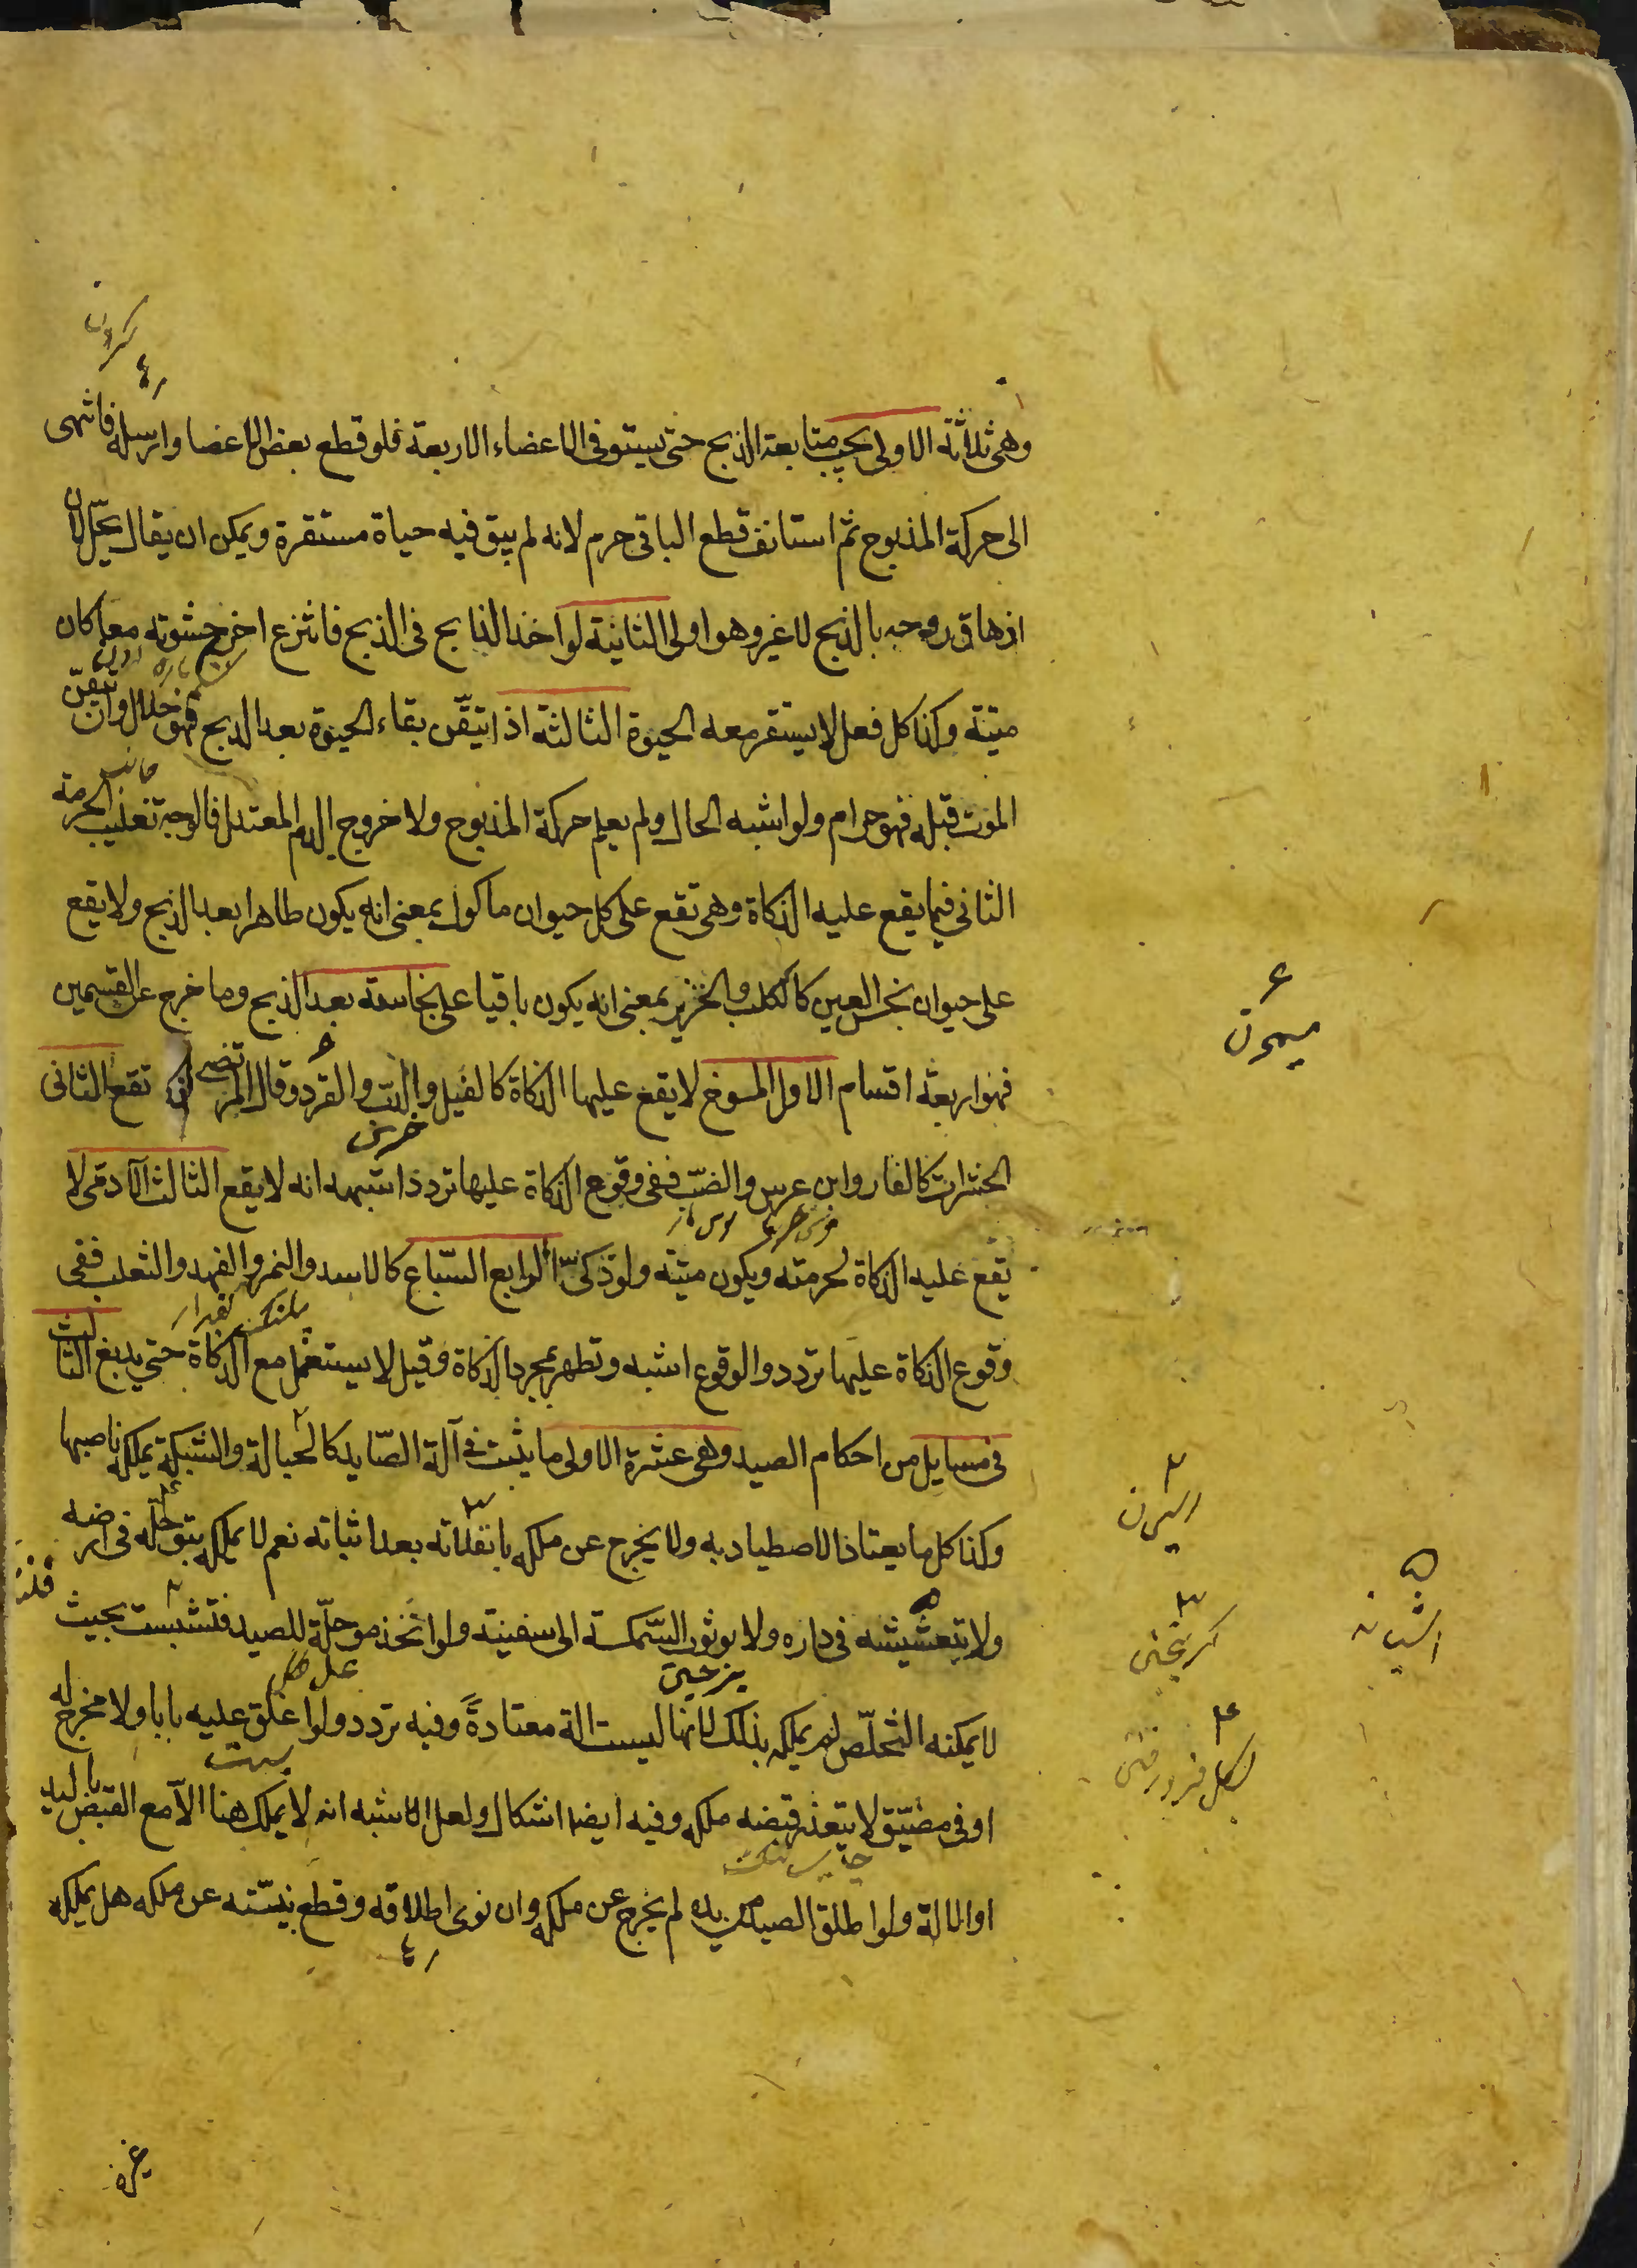 وهى ثلاثة الاولى يجب متابعة الذبح حتى يستوفى الاعضاء الاربعة فلو قطع بعض الاعضا وارسله فانتهى
الى حركة المذبوح ثم استانف قطع الباقى حرم لانه لم يبق فيه حياة مستقرة ويمكن ان يقال يحل لان
ازهاق روحه بالذبح لا غير وهو اولى الثانية لو اخذ الذابح فى الذبح فانتزع اخر حشوته معا كان
ميتة وكذا كل فعل لا يستقر معه الحيوة الثالثة اذا تيقن بقاء الحيوة بعد الذبح فهو حلال وان تيقن
الموت قبله فهو حرام ولو اشبه الحال ولم يعلم حركة المذبوح ولا خروج الدم المعتدل فالوجه تغليب الحرمة
الثانى فيما يقع عليه الذكاة وهى تقع على كل حيوان ماكول بمعنى انه يكون طاهرا بعد الذبح ولا يقع
على حيوان نجس العين كالكلب والخنزير بمعنى انه يكون باقيا على نجاسته بعد الذبح وما خرج عن القسمين
فهو اربعة اقسام الاول المسوخ لا يقع عليها الذكاة كالفيل والدب والقرد وقال المرتضى تقع الثانى
خرس
الحشرات كالفار وابن عرس والضب ففى وقوع الذكاة عليها تردد اشبهه انه لا يقع الثالث الآدمى لا
يقع عليه الذكاة لحرمته ويكون ميتة ولو ذكى الرابع السباع كالاسد والنمر والفهد والثعلب ففى
وقوع الذكاة عليها تردد والوقوع اشبه وتطهر بمجرد الذكاة وقيل لا يستعمل مع الذكاة حتى يدبغ الثالث
فى مسايل من احكام الصيد وهى عشرة الاولى ما يثبت فى آلة الصايد كالحبالة والشبكة يملكه ناصبها
وكذا كل ما يعتاد الاصطياد به ولا يخرج عن ملكه بانفلاته بعد اثباته نعم لا يملكه بتوحله فى ارضه
ولا بتعشيشه فى داره ولا بوثوب السمكة الى سفينة ولو اتخذ موحلة للصيد فتشبست بحيث
لا يمكنه التخلص لم يملكه بذلك لانها ليست الة معتادة وفيه تردد ولو اغلق عليه بابا ولا مخرج له
او فى مضيق لا يتعذر قبضه ملكه وفيه ايضا اشكال ولعل الاشبه انه لا يملك هنا الا مع القبض باليد
او الالة ولو اطلق الصيد من يده لم يخرج عن ملكه وان نوى اطلاقه وقطع نيته عن ملكه هل يملكه
ميمون
غيره